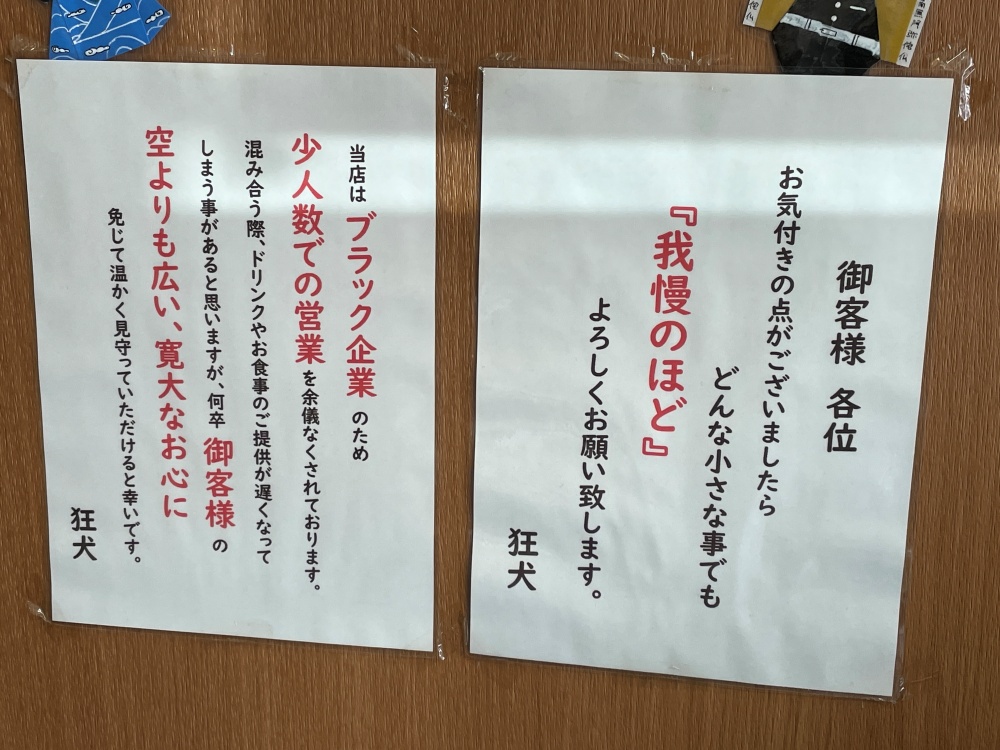 御客様 各位
お気付きの点がございましたら
どんな小さな事でも
『我慢のほど』
よろしくお願い致します。
狂犬
当店は ブラック企業 のため
少人数での営業 を余儀なくされております。
混み合う際、ドリンクやお食事のご提供が遅くなって
しまう事があると思いますが、何卒 御客様 の
空よりも広い、寛大なお心に
免じて温かく見守っていただけると幸いです。
狂犬